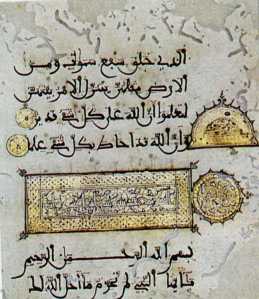 الذي خلق سبع سموت ومن
الارض مثلهن يتنزل الامر بينهن
لتعلموا ان الله على كل شي قدير
وان الله قد احاط بكل شي علما
بسم الله الرحمن الرحيم
يايها النبي لم تحرم ما احل الله لك